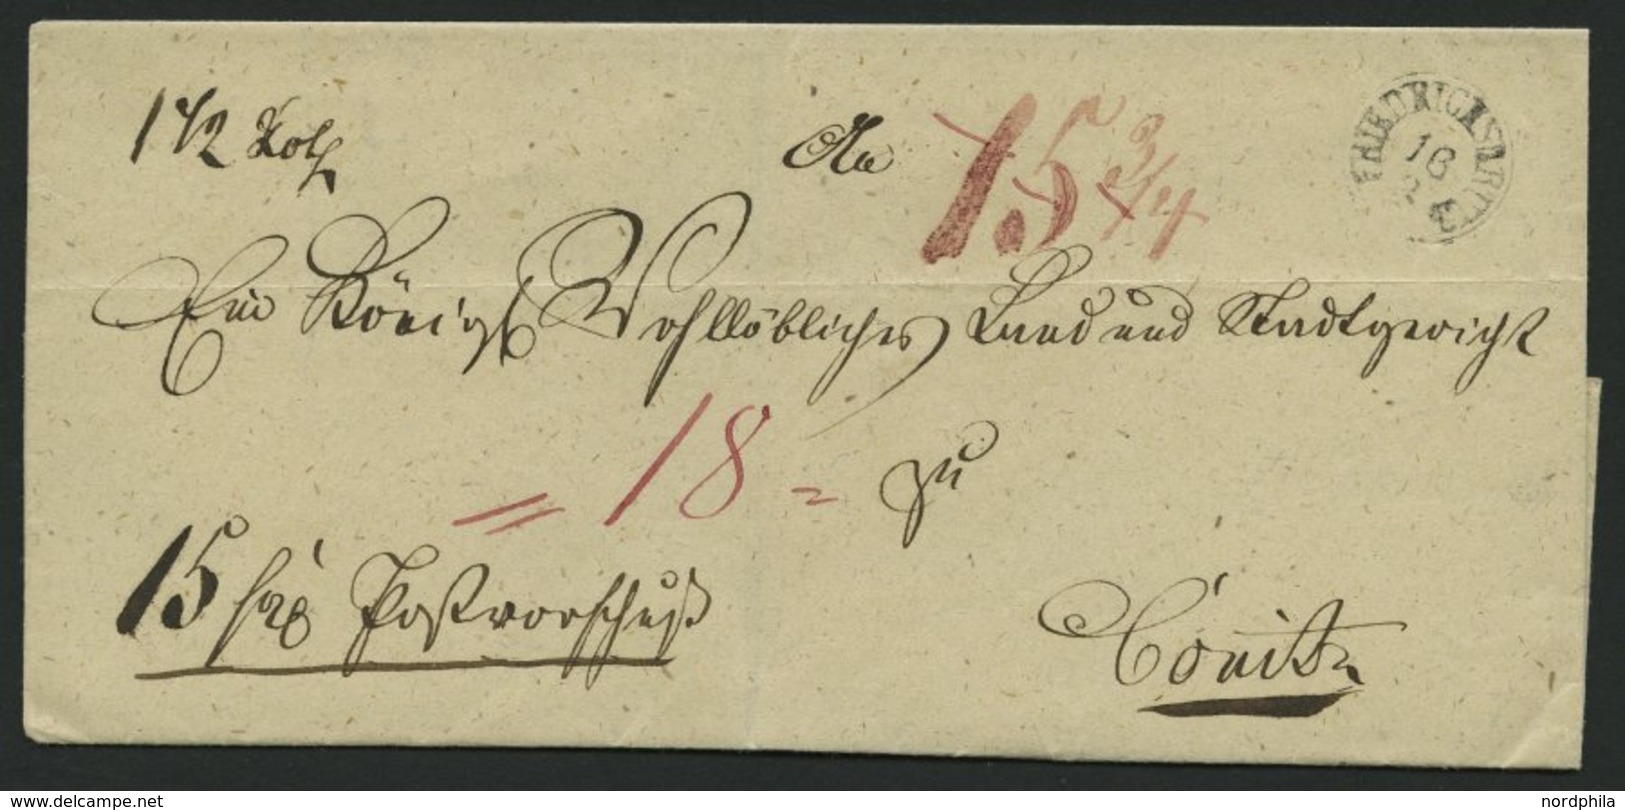 1 1/2 Loth
An
15 3/4
FRIEDRICHSBRUCH
16
Ein Königl Wohllöbliches Land und Stadtgericht
= 18 =
zu
15 sgr Postvorschuß
Conitz
www.delcampe.net
nordphila